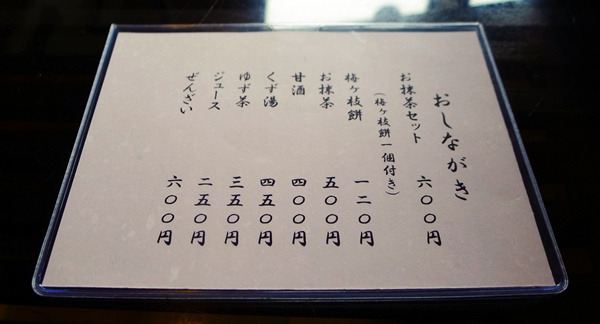 おしながき
お抹茶セット 六〇〇円
(梅ヶ枝餅一個付き)
梅ヶ枝餅 一二〇円
お抹茶 五〇〇円
甘酒 四〇〇円
くず湯 四五〇円
ゆず茶 三五〇円
ジュース 二五〇円
ぜんざい 六〇〇円